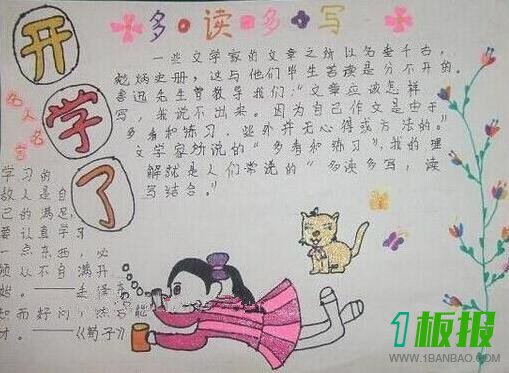 开学了
多·读·多·写
一些文学家的文章之所以名垂千古,
彪炳史册,这与他们毕生苦读是分不开的。
鲁迅先生曾教导我们:“文章应该怎样
写,我说不出来。因为自己作文是由于
多看和练习,此外并无心得或方法的。”
文学家所说的“多看和练习”,我的理
解就是人们常说的“多读多写,读
写结合。”
名人名言
学习的
敌人是自
己的满足,
要认真学习
一点东西,必
须从不自满开
始。——毛泽东
知而好问,然后能
才。——《荀子》
1板报
WWW.1BANBAO.COM